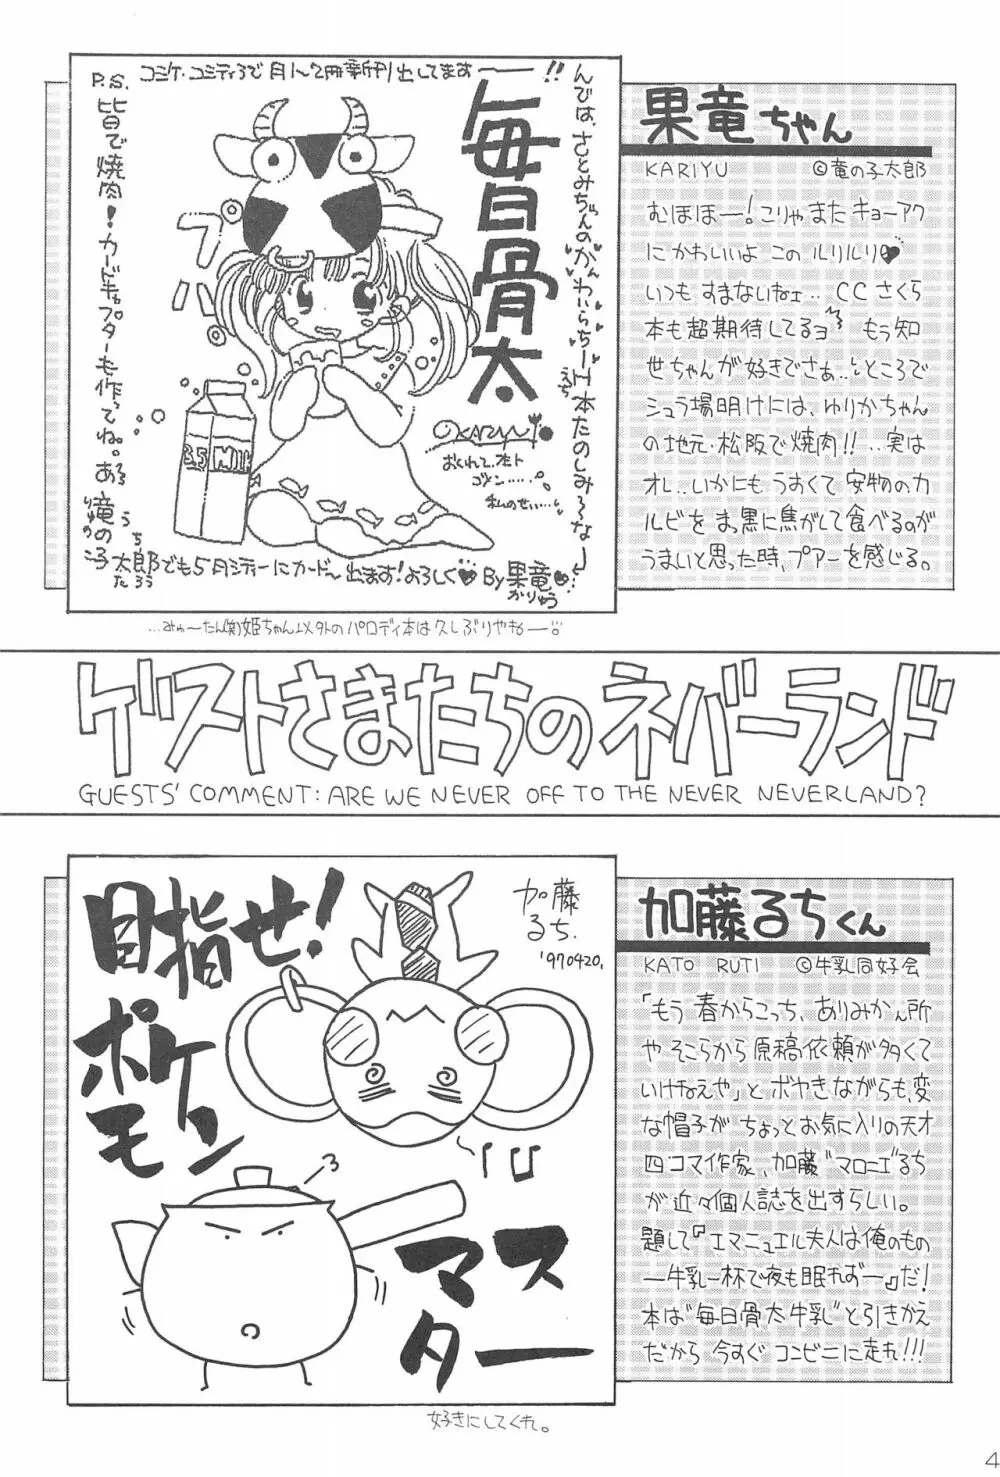 コミケ・コミティアで月1〜2冊新刊出してます——!!
毎日骨太
んでは、さとみちゃんのかわいらちーH本たのしみ〜な——
えち
P.S.
皆で焼肉!カードキャプターも作ってね。
プハ
3.5 MILK
KARIYU
おくれて、ホト
ゴメン・・・・・
私のせい・・・・
竜の子太郎でも5月シティーにカード〜出ます!よろしく♥By果竜♥
りゅう
こ
たろう
かりゅう
…みゅ〜たん(笑)姫ちゃん以外のパロディ本は久しぶりやね—。
果竜ちゃん
KARIYU ©竜の子太郎
むほほー!こりゃまたキョーアク
にかわいいよ このルリルリ♥
いつも すまないねェ‥ CCさくら
本も超期待してるヨ もう知
世ちゃんが好きでさぁ‥ ところで
シュラ場明けには、ゆりかちゃん
の地元・松阪で焼肉!!‥実は
オレ‥いかにもうすくて安物のカ
ルビをまっ黒に焦がして食べるのが
うまいと思った時、プアーを感じる。
ゲストさまたちのネバーランド
GUESTS' COMMENT: ARE WE NEVER OFF TO THE NEVER NEVERLAND?
目指せ!
ポケモン
マスター
加藤
るち.
'970420.
好きにしてくれ。
加藤るちくん
KATO RUTI ©牛乳同好会
「もう 春からこっち、ありみかん所
や そこらから 原稿依頼が多くて
いけねえや」と ボヤきながらも、変
な帽子が ちょっとお気に入りの天才
四コマ作家、加藤"マロニエ"るち
が近々個人誌を出すらしい。
題して『エマニュエル夫人は俺のもの
—牛乳一杯で夜も眠れず—』だ!
本は"毎日骨太牛乳"と引きかえ
だから 今すぐ コンビニに走れ!!!
4